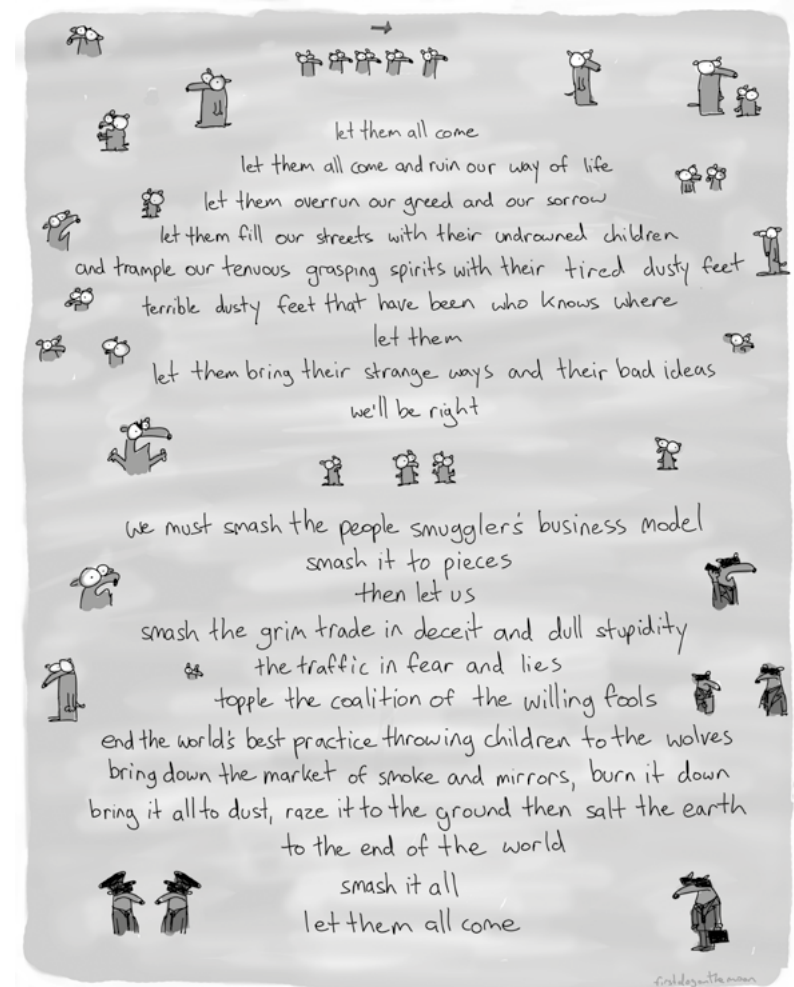 let them all come
let them all come and ruin our way of life
let them overrun our greed and our sorrow
let them fill our streets with their undrowned children
and trample our tenuous grasping spirits with their tired dusty feet
terrible dusty feet that have been who knows where
let them
let them bring their strange ways and their bad ideas
we'll be right
we must smash the people smuggler's business model
smash it to pieces
then let us
smash the grim trade in deceit and dull stupidity
the traffic in fear and lies
topple the coalition of the willing fools
end the world's best practice throwing children to the wolves
bring down the market of smoke and mirrors, burn it down
bring it all to dust, raze it to the ground then salt the earth
to the end of the world
smash it all
let them all come
firstdogonthemoon